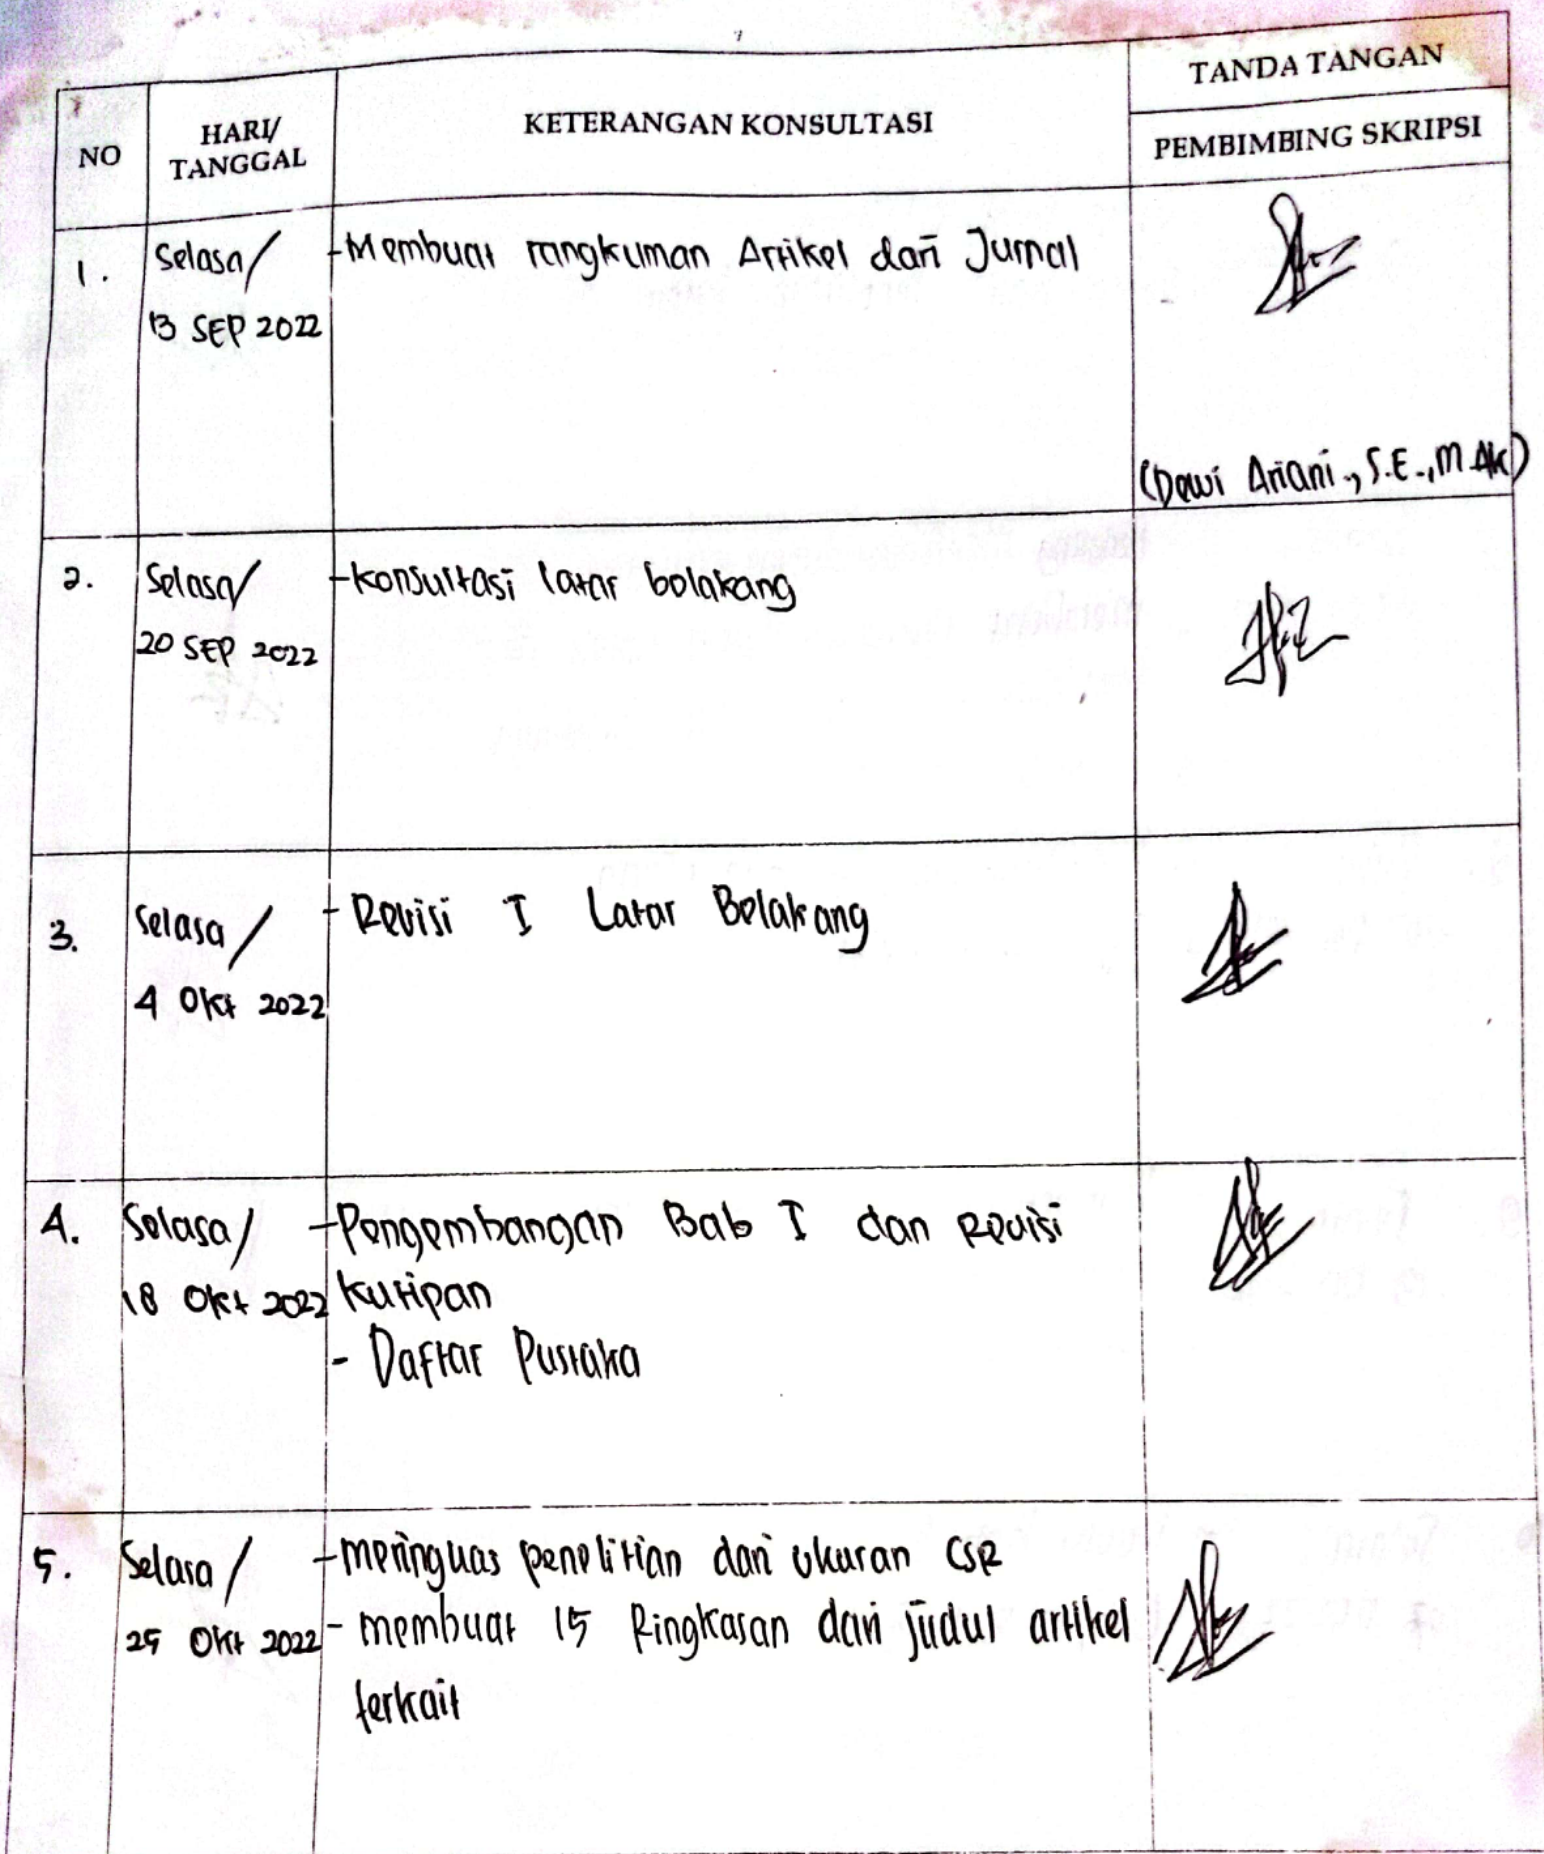 NO
HARI/
TANGGAL
KETERANGAN KONSULTASI
TANDA TANGAN
PEMBIMBING SKRIPSI
1.
Selasa/
13 SEP 2022
-Membuat rangkuman Artikel dari Jurnal
(Dewi Ariani., S.E., M.Ak)
2.
Selasa/
20 SEP 2022
-Konsultasi latar belakang
3.
Selasa/
4 Okt 2022
- Revisi I Latar Belakang
4.
Selasa/
18 Okt 2022
-Pengembangan Bab I dan Revisi
kutipan
- Daftar Pustaka
5.
Selasa/
25 Okt 2022
-meringuas penelitian dari ukuran CSR
- membuat 15 Ringkasan dari judul artikel
terkait